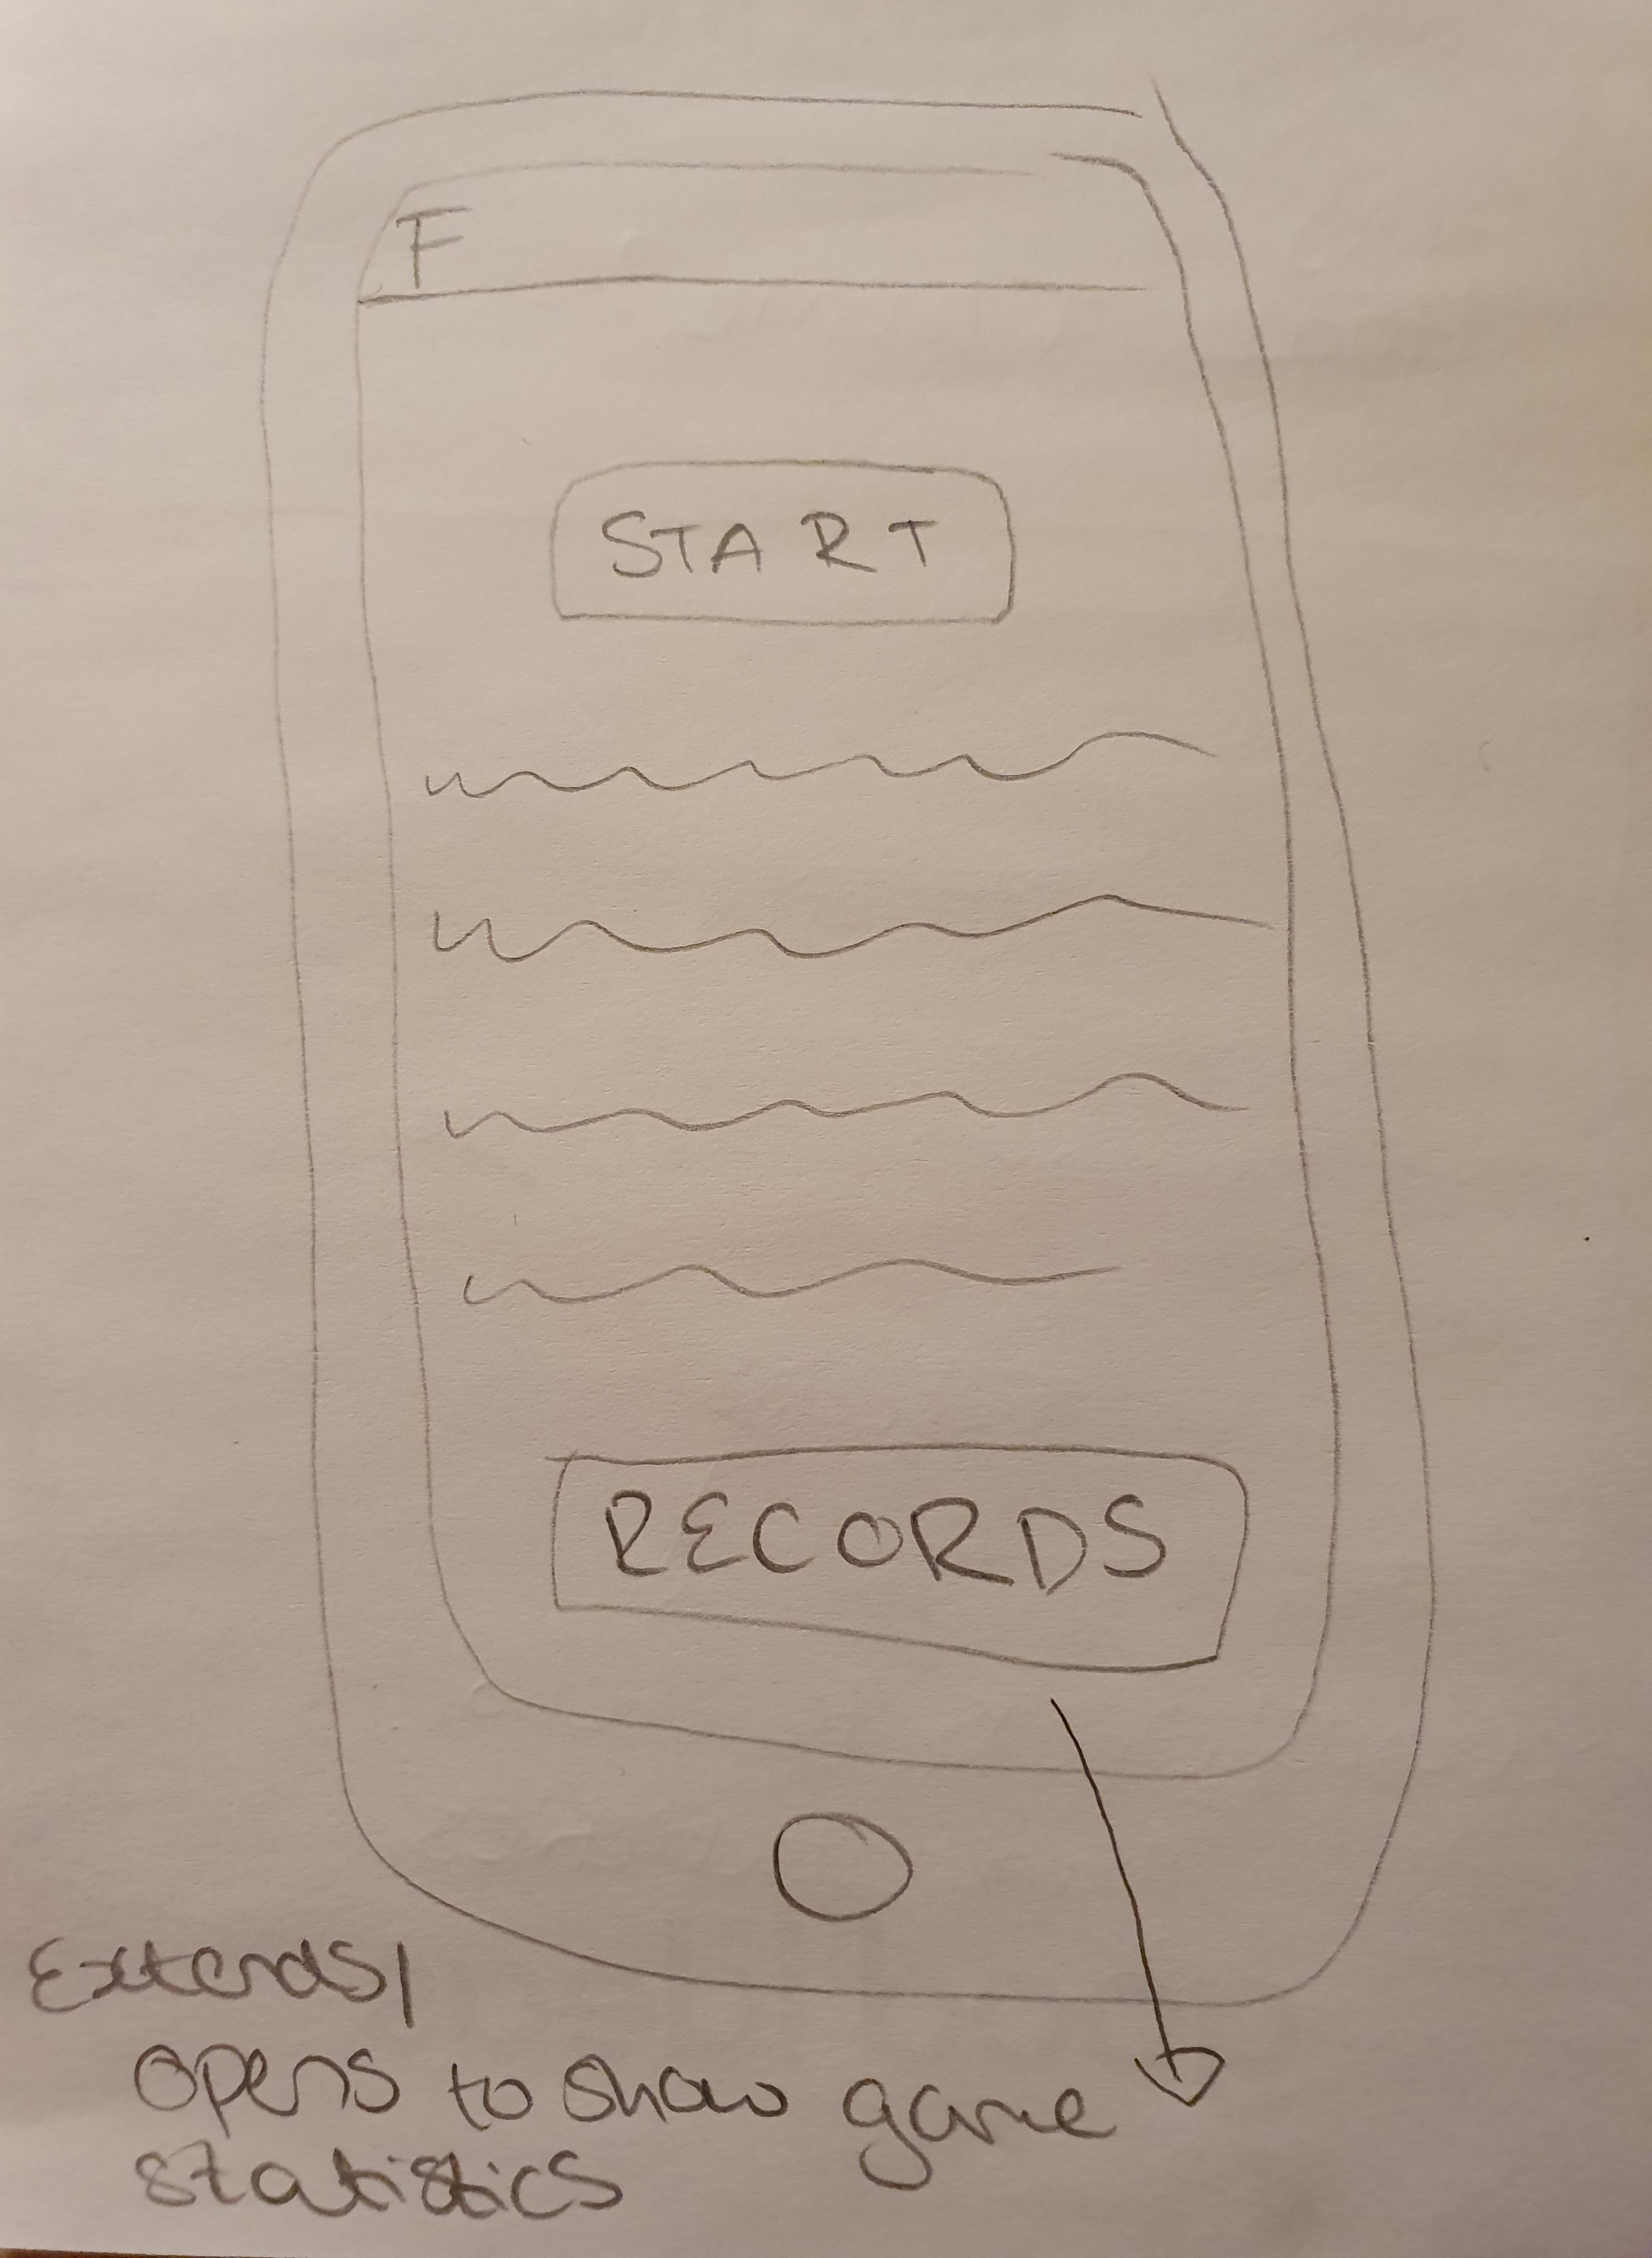 F
START
RECORDS
Extends/
opens to show game
statistics